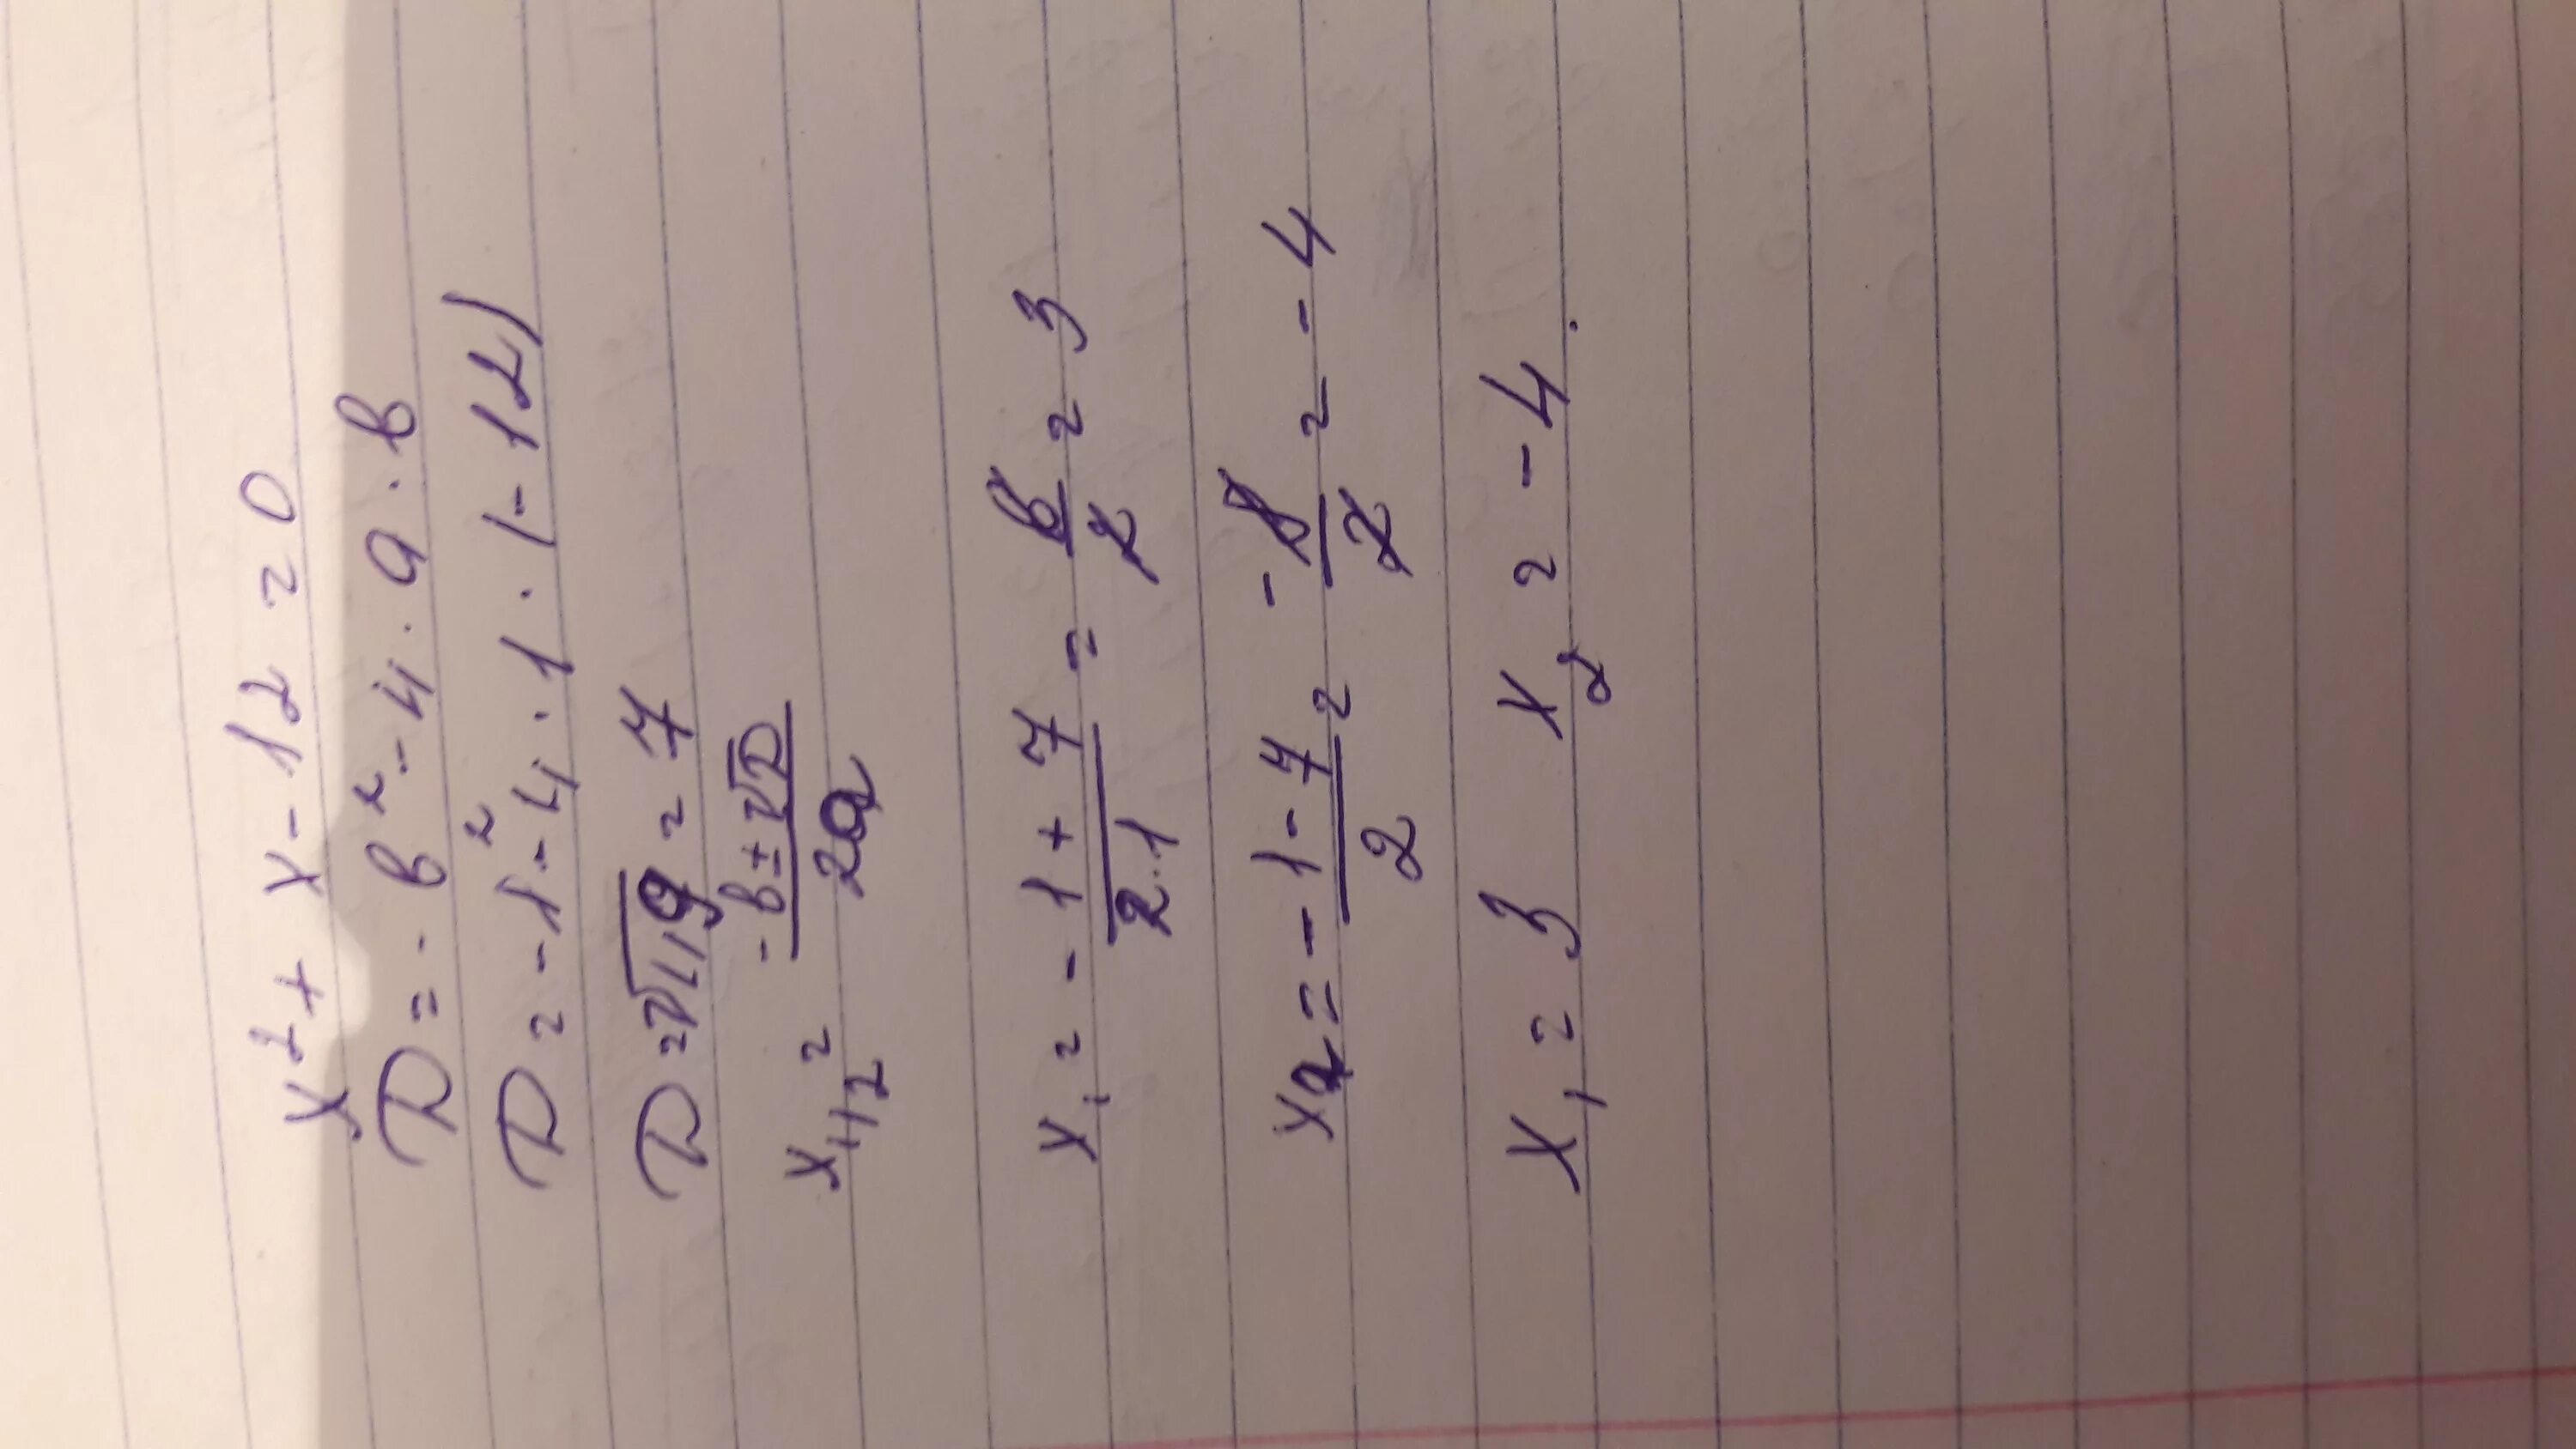 x² + x - 12 = 0
D = -b² - 4 · a · b
D = -1² - 4 · 1 · (-12)
D = √49 = 7
x₁,₂ = -b ± √D / 2a
x₁ = -1 + 7 / 2·1 = 6/2 = 3
x₂ = -1 - 7 / 2 = -8/2 = -4
x₁ = 3 x₂ = -4.